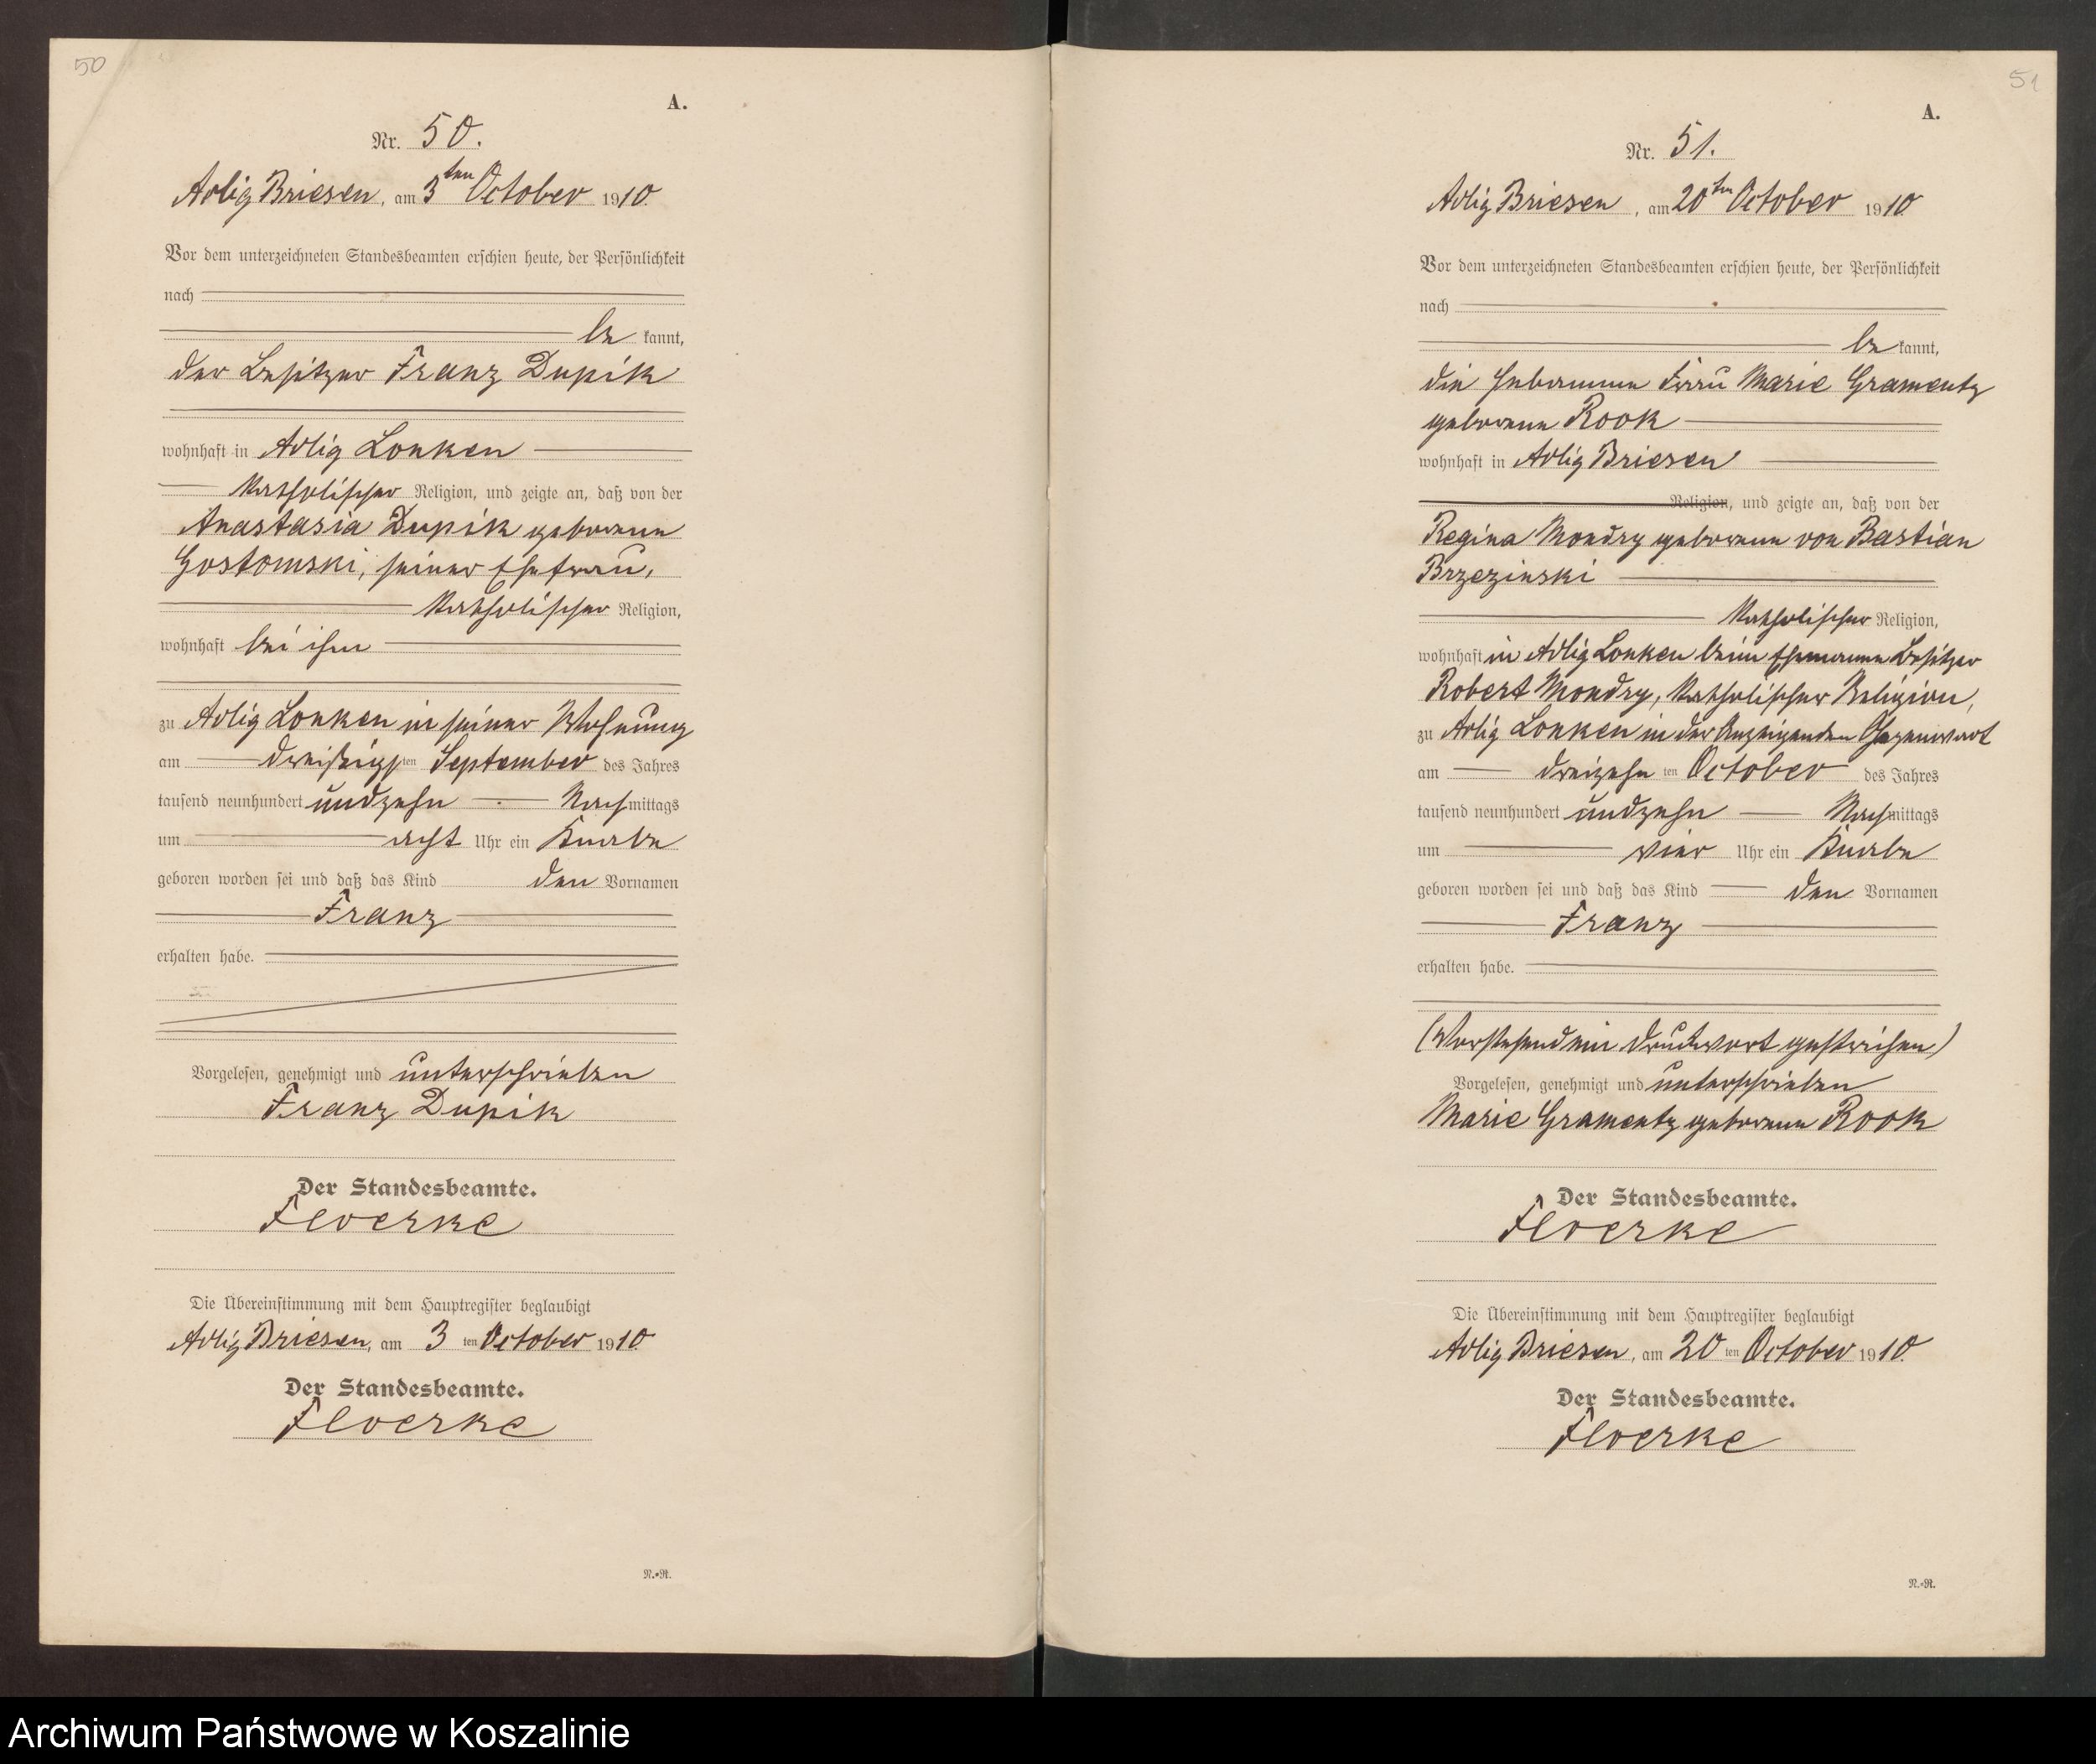 50
A.
Nr. 50.
Adlig Briesen, am 3ten October 1910.
Vor dem unterzeichneten Standesbeamten erschien heute, der Persönlichkeit
nach
be kannt,
der Besitzer Franz Dupik
wohnhaft in Adlig Lonken
katholischer Religion, und zeigte an, daß von der
Anastasia Dupik geborene
Gostomski, seiner Ehefrau,
katholischer Religion,
wohnhaft bei ihm
zu Adlig Lonken in seiner Wohnung
am dreißigsten September des Jahres
tausend neunhundert undzehn Nachmittags
um acht Uhr ein Knabe
geboren worden sei und daß das Kind den Vornamen
Franz
erhalten habe.
Vorgelesen, genehmigt und unterschrieben
Franz Dupik
Der Standesbeamte.
Floerke
Die Übereinstimmung mit dem Hauptregister beglaubigt
Adlig Briesen, am 3 ten October 1910.
Der Standesbeamte.
Floerke
N.-R.
51
A.
Nr. 51.
Adlig Briesen, am 20ten October 1910.
Vor dem unterzeichneten Standesbeamten erschien heute, der Persönlichkeit
nach
be kannt,
die Hebamme Frau Marie Gramentz
geborene Rook
wohnhaft in Adlig Briesen
Religion, und zeigte an, daß von der
Regina Mondry geborene von Bastian
Brzezinski
katholischer Religion,
wohnhaft in Adlig Lonken beim Ehemanne Besitzer
Robert Mondry, katholischer Religion,
zu Adlig Lonken in der Anzeigenden Gegenwart
am dreizehn ten October des Jahres
tausend neunhundert undzehn Nachmittags
um vier Uhr ein Knabe
geboren worden sei und daß das Kind den Vornamen
Franz
erhalten habe.
(Vorstehend ein Druckwort gestrichen)
Vorgelesen, genehmigt und unterschrieben
Marie Gramentz geborene Rook
Der Standesbeamte.
Floerke
Die Übereinstimmung mit dem Hauptregister beglaubigt
Adlig Briesen, am 20 ten October 1910.
Der Standesbeamte.
Floerke
N.-R.
Archiwum Państwowe w Koszalinie